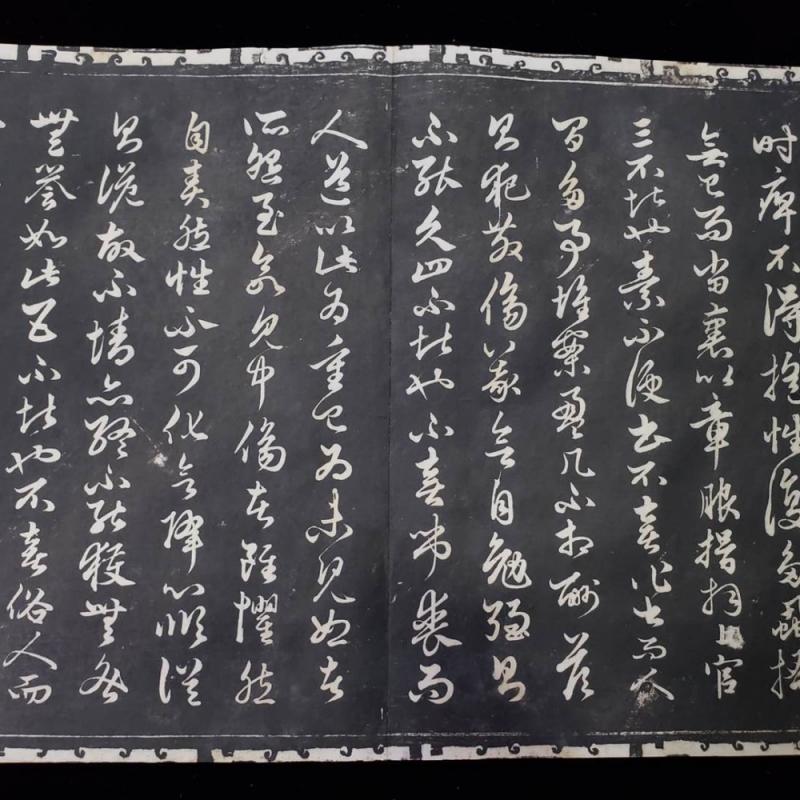 時痺不得搖性復多蝨把
無已而當裹以章服揖拜上官
三不堪也素不便書不喜作書而人
間多事堆案盈几不相酬答
則犯教傷義欲自勉強則
不能久四不堪也不喜弔喪而
人道以此為重已為未見恕者
所怨至欲見中傷者雖懼然
自責然性不可化欲降心順俗
則詭故不情亦終不能獲無咎
無譽如此五不堪也不喜俗人而